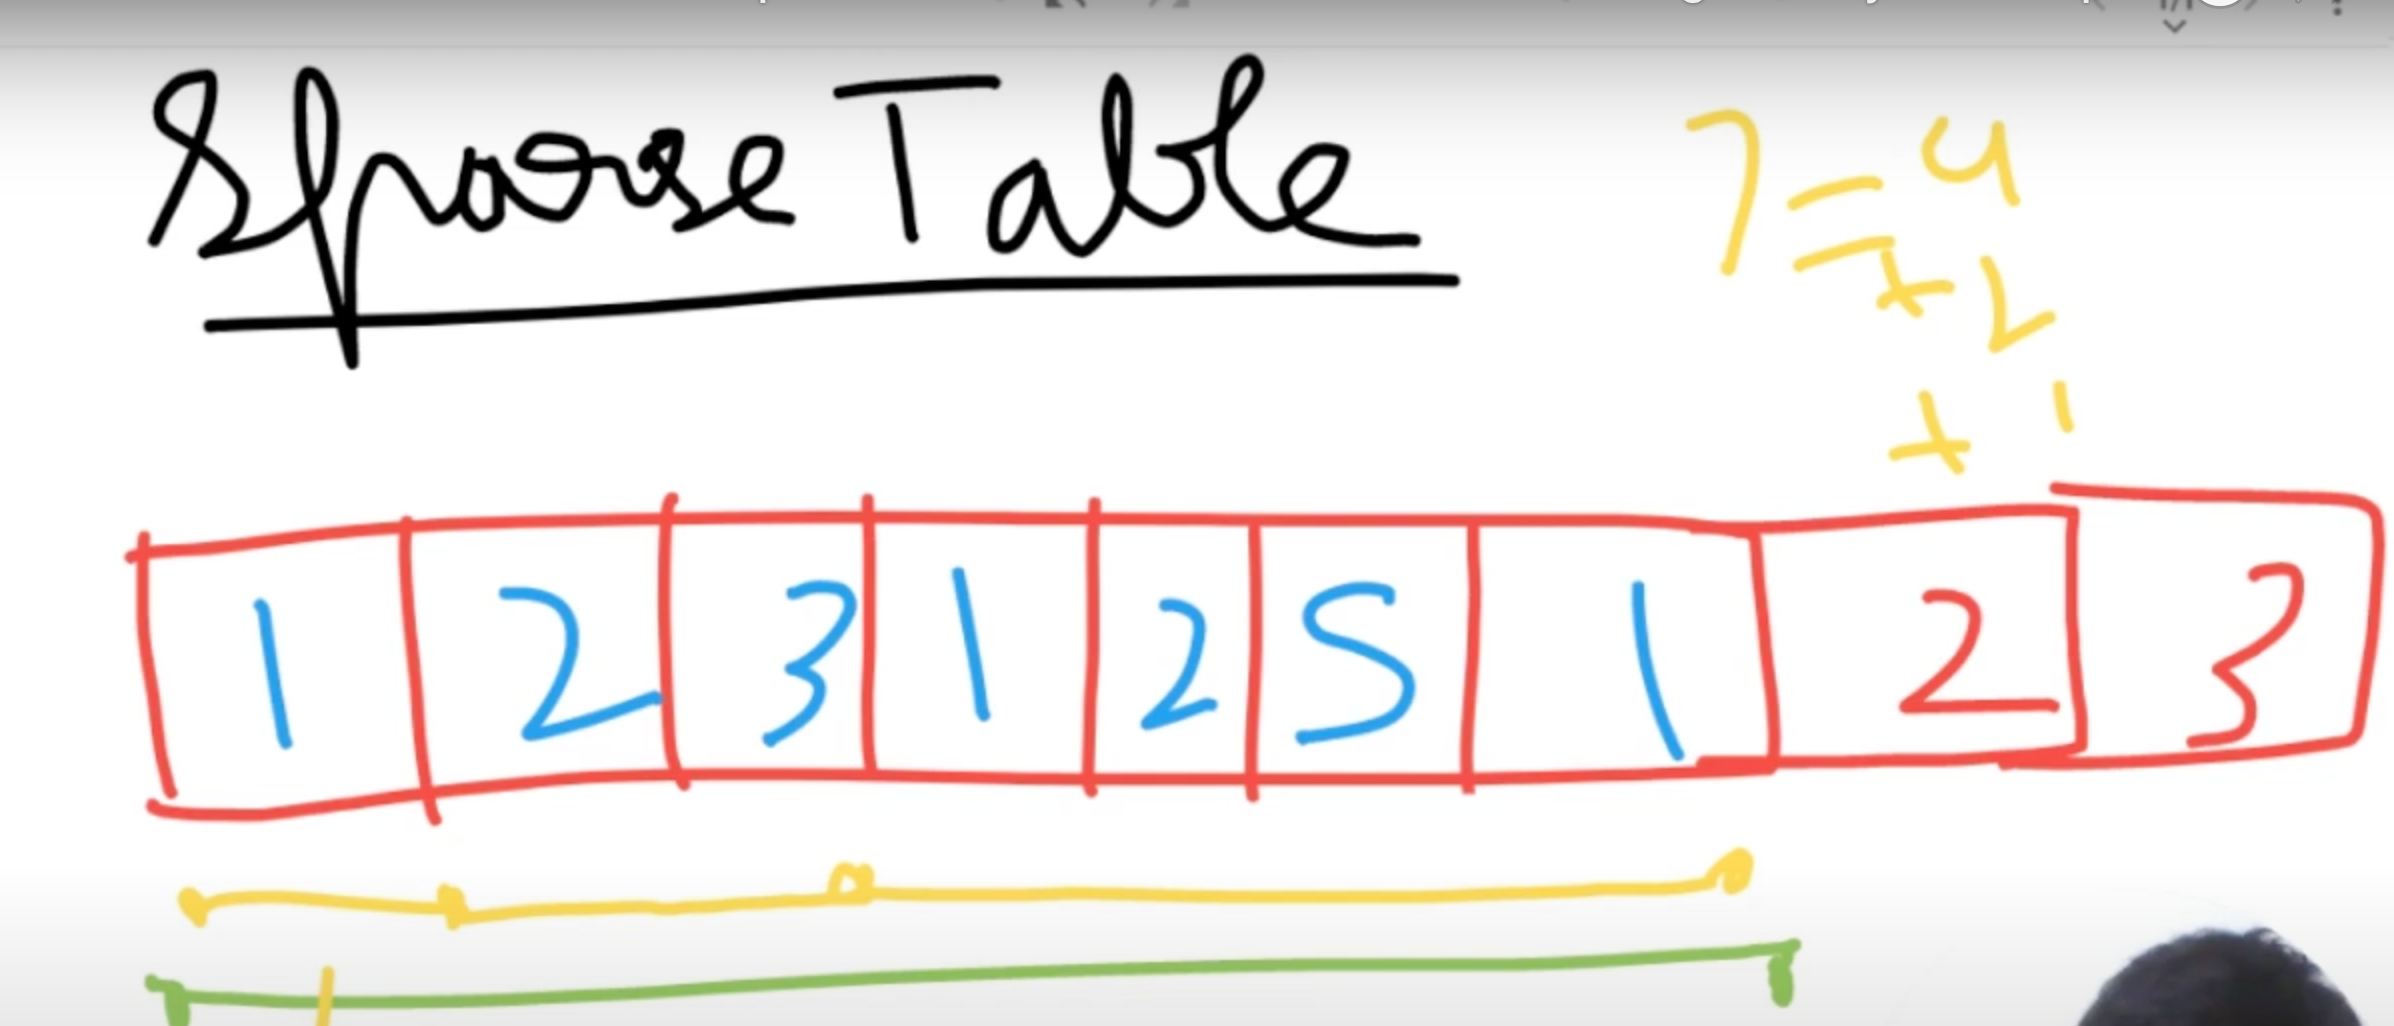 Sparse Table
7 = 4
+ 2
+ 1
1 2 3 1 2 5 1 2 3